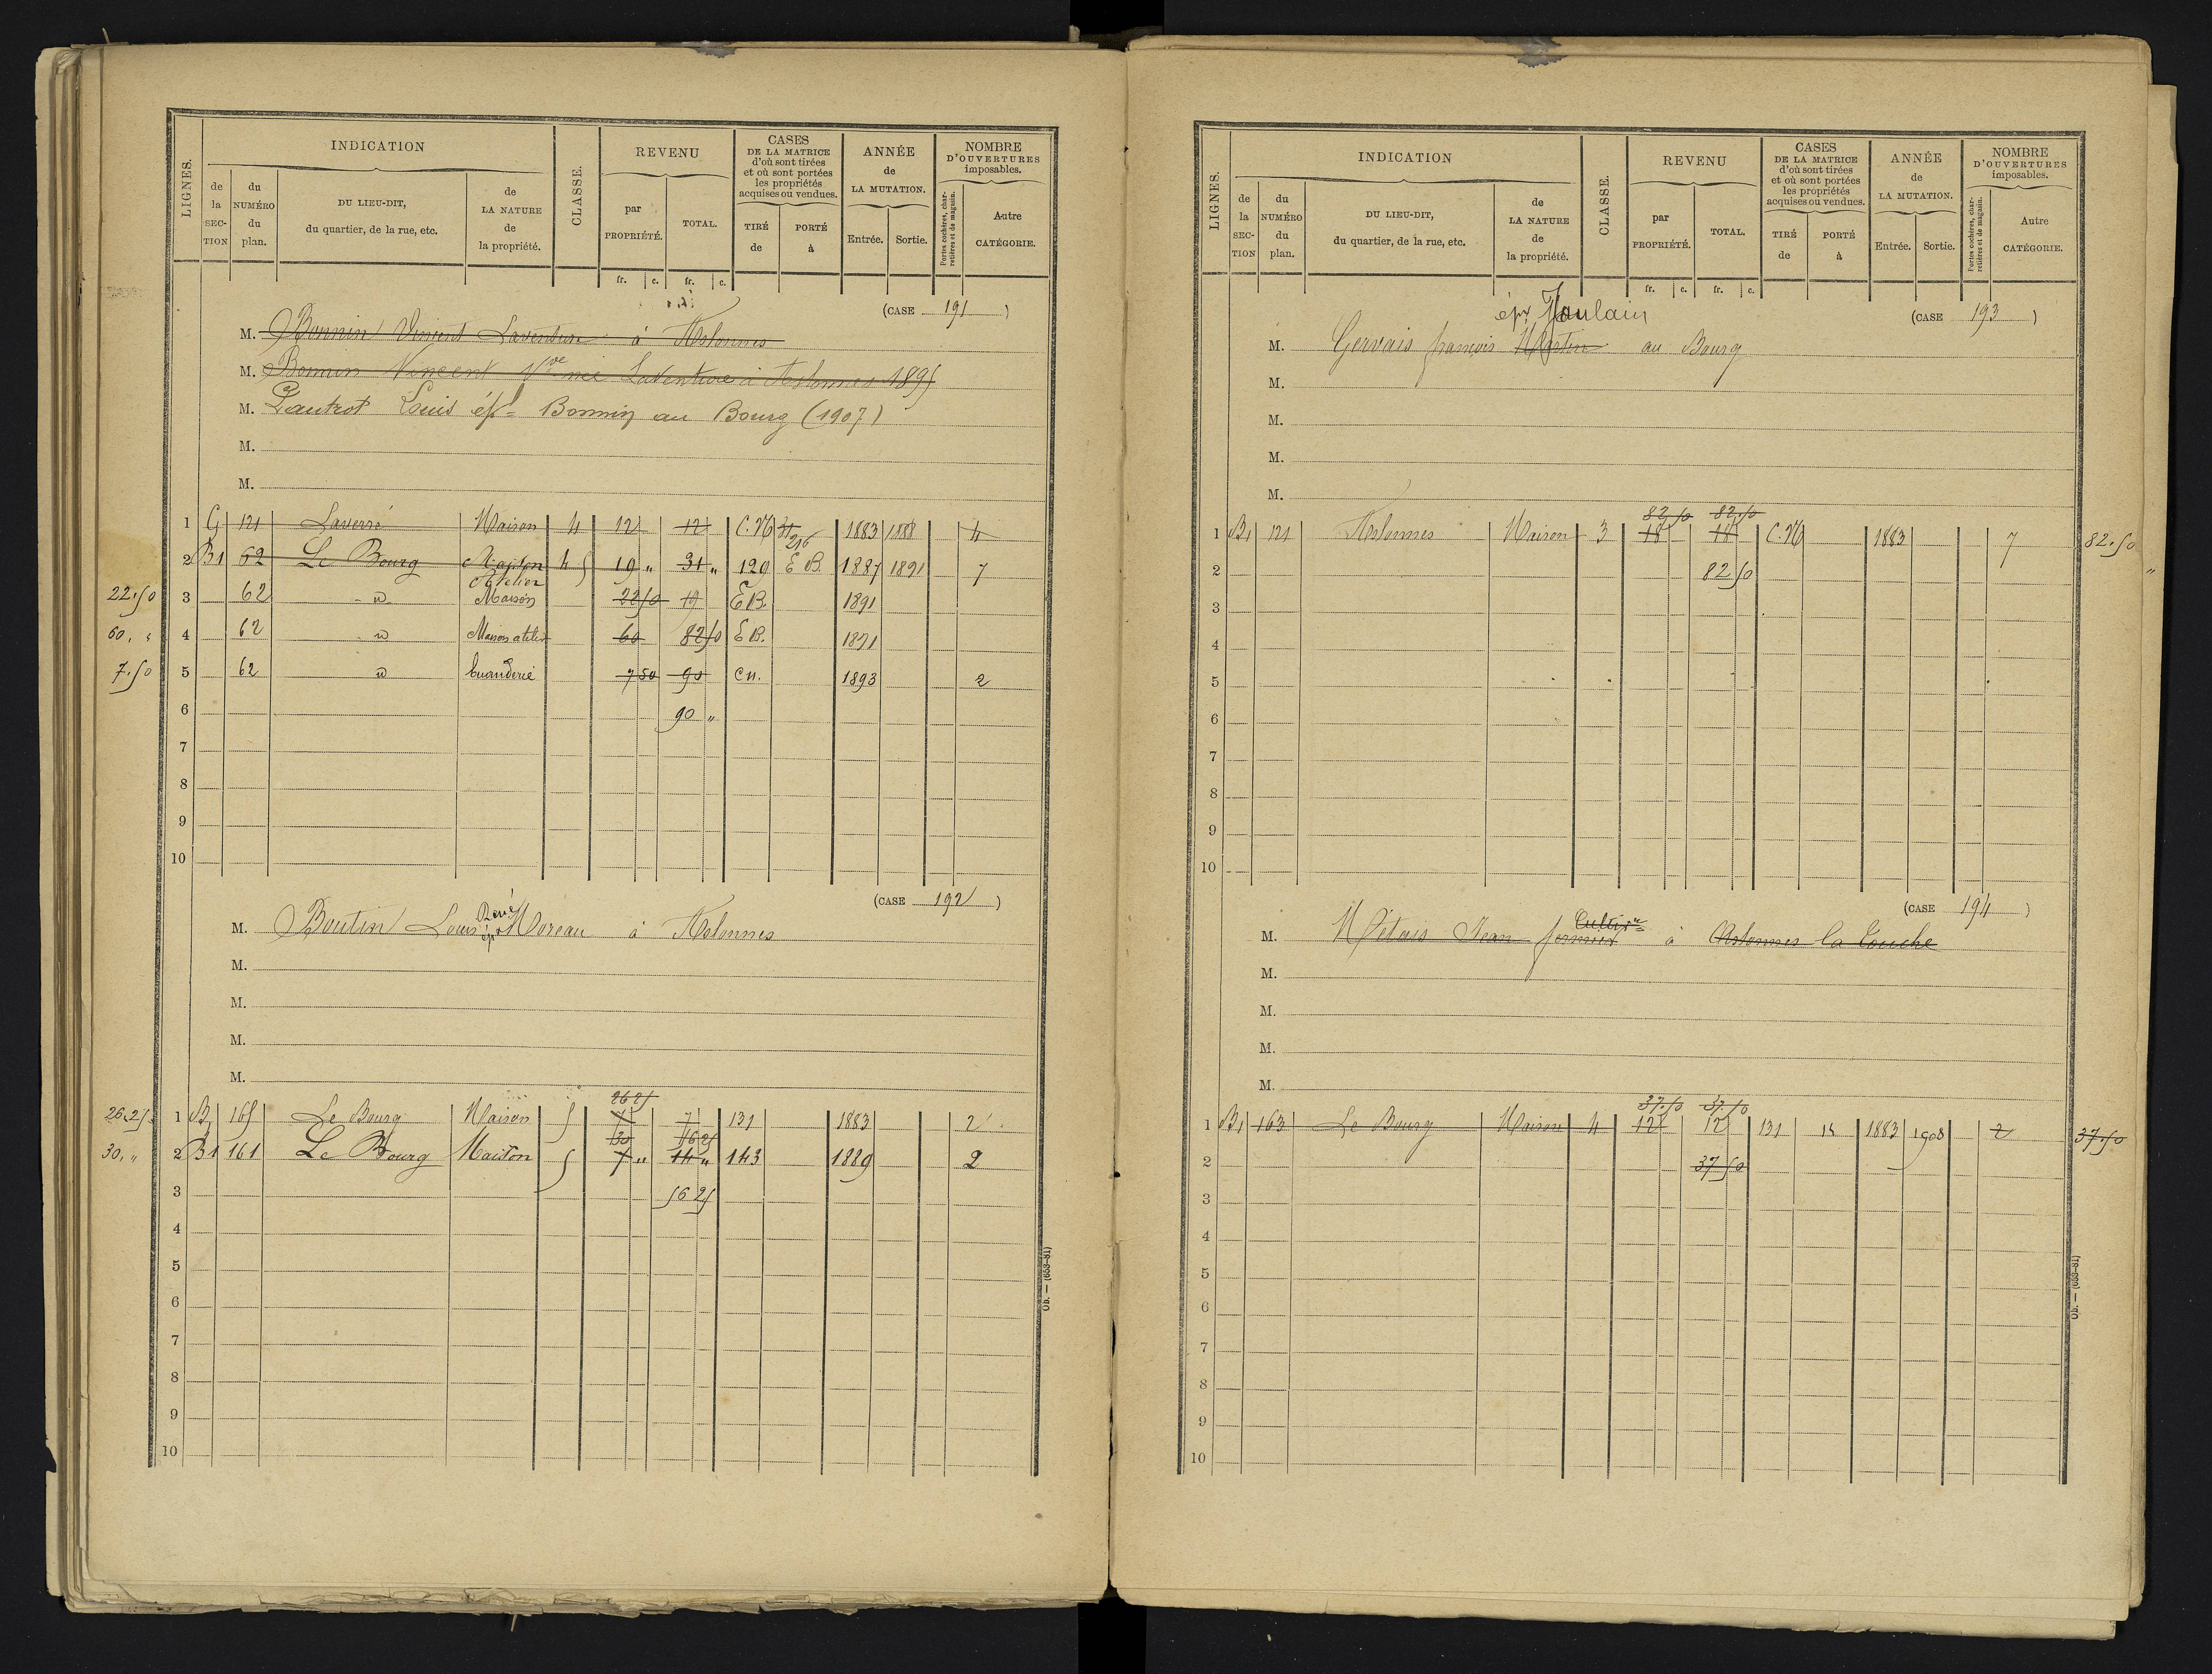 LIGNES.
INDICATION
de la SECTION
du NUMÉRO du plan.
DU LIEU-DIT, du quartier, de la rue, etc.
de LA NATURE de la propriété.
CLASSE.
REVENU
par PROPRIÉTÉ.
TOTAL.
CASES DE LA MATRICE d'où sont tirées et où sont portées les propriétés acquises ou vendues.
TIRÉ de
PORTÉ à
ANNÉE de LA MUTATION.
Entrée.
Sortie.
NOMBRE D'OUVERTURES imposables.
Portes cochères, charretières et de magasin.
Autre CATÉGORIE.
fr. c. fr. c.
(CASE 191)
M. Bonnin Vincent Laventure à Aslonnes
M. Bonnin Vincent Vve née Laventure à Aslonnes 1895
M. Pautrot Louis ép= Bonnin au Bourg (1907)
M.
M.
1 G 121 Laverré Maison 4 12 12 C.N 31 216 1883 1888 4
2 B1 62 Le Bourg Maison Atelier 4 5 19 " 31 " 129 E B. 1887 1891 7
22.50 3 62 d Maison 22 50 19 E B. 1891
60. " 4 62 d Maison atelier 60 82 50 E B. 1891
7.50 5 62 d buanderie 7 50 90 C N. 1893 2
6 90 "
7
8
9
10
(CASE 192)
M. Boutin Louis René épx Moreau à Aslonnes
M.
M.
M.
M.
26 25
26.25 1 B1 165 Le Bourg Maison 5 7 7 131 1883 2
30 56 25
30. " 2 B1 161 Le Bourg Maison 5 7 " 14 " 143 1889 2
3 56 25
4
5
6
7
8
9
10
Ob. — (653-81)
LIGNES.
INDICATION
de la SECTION
du NUMÉRO du plan.
DU LIEU-DIT, du quartier, de la rue, etc.
de LA NATURE de la propriété.
CLASSE.
REVENU
par PROPRIÉTÉ.
TOTAL.
CASES DE LA MATRICE d'où sont tirées et où sont portées les propriétés acquises ou vendues.
TIRÉ de
PORTÉ à
ANNÉE de LA MUTATION.
Entrée.
Sortie.
NOMBRE D'OUVERTURES imposables.
Portes cochères, charretières et de magasin.
Autre CATÉGORIE.
fr. c. fr. c.
(CASE 193)
épx Joulain
M. Gervais françois Martin au Bourg
M.
M.
M.
M.
82.50 82.50
1 B1 121 Aslonnes Maison 3 18 18 C.N 1883 7 82.50
2 82 50 "
3
4
5
6
7
8
9
10
(CASE 194)
Cultivr
M. Métais Jean fermier à Aslonnes la Touche
M.
M.
M.
M.
37.50 37.50
1 B1 163 Le Bourg Maison 4 12 12 131 15 1883 1908 2 37.50
2 37 50
3
4
5
6
7
8
9
10
Ob. — (653-81)